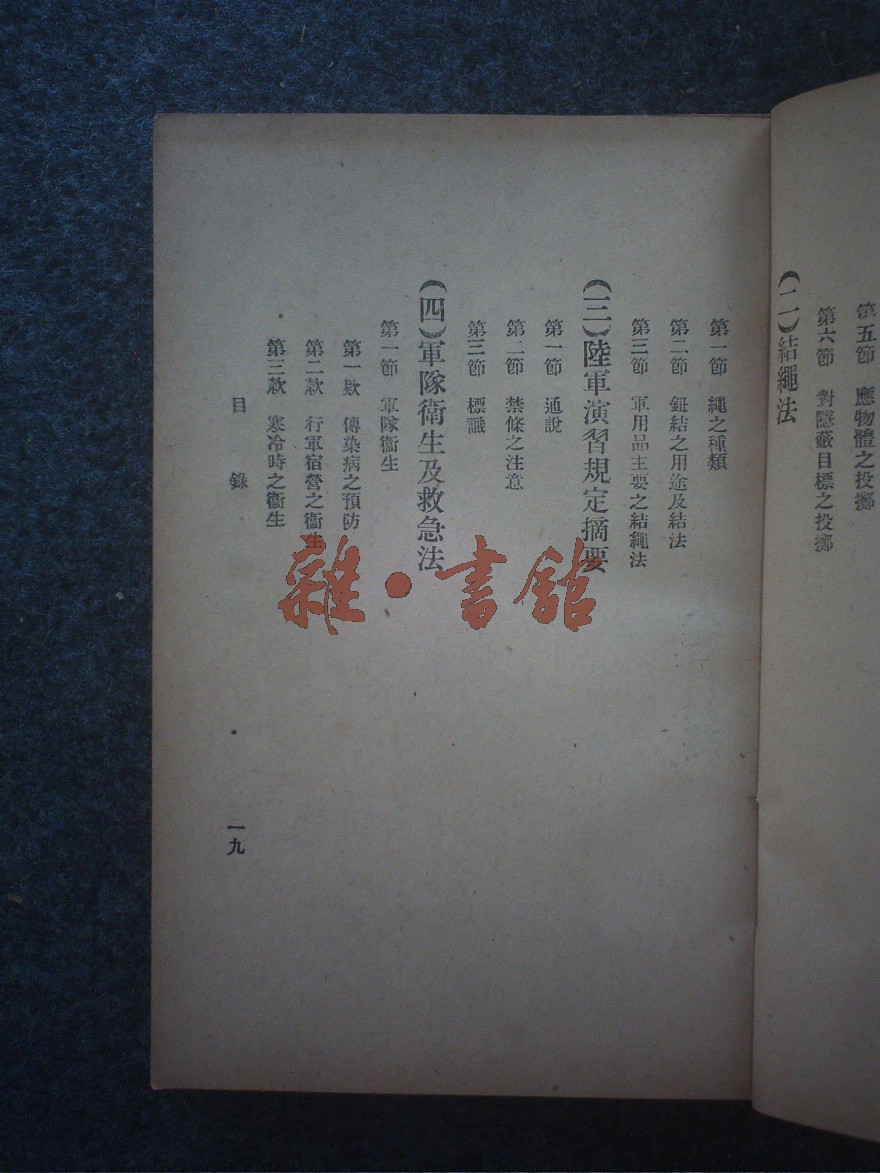 第五節　應物體之投擲
第六節　對隱蔽目標之投擲
(二)結繩法
第一節　繩之種類
第二節　鈕結之用途及結法
第三節　軍用品主要之結繩法
(三)陸軍演習規定摘要
第一節　通說
第二節　禁條之注意
第三節　標識
(四)軍隊衛生及救急法
第一節　軍隊衞生
第一款　傳染病之預防
第二款　行軍宿營之衞生
第三款　寒冷時之衞生
目錄
一九
雜・書舘